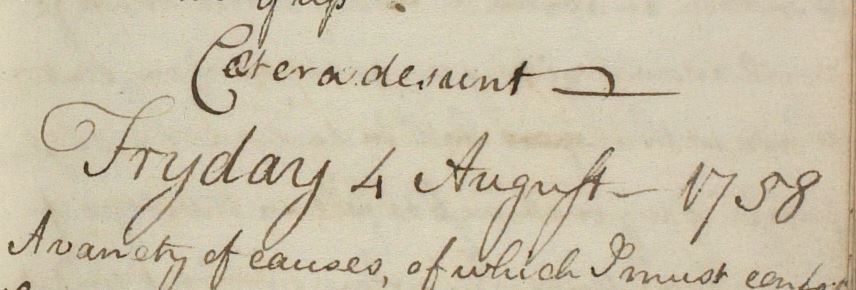 Cætera desunt
Fryday 4 August - 1758
A variety of causes, of which I must